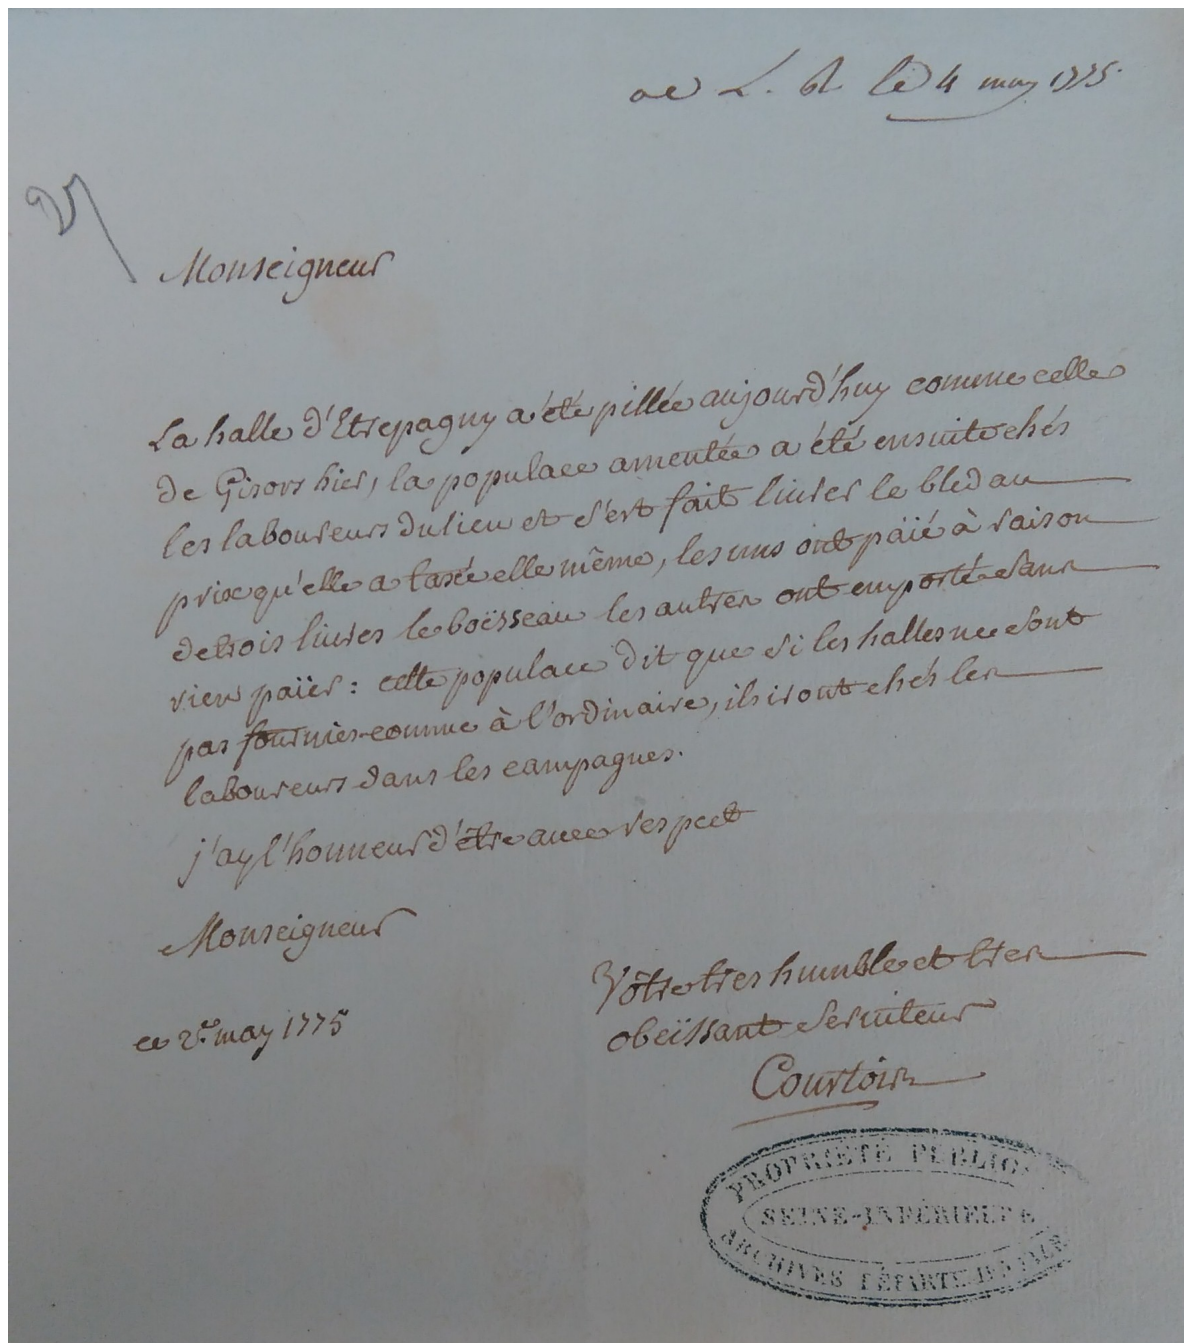 le 4 may 1775.
Monseigneur
La halle d'Etrepagny a été pillée aujourd'huy comme celle
de Gisors hier, la populace ameutée a été ensuite chés
les laboureurs du lieu et s'est fait livrer le bled au
prix qu'elle a taxé elle même, les uns ont païé à raison
de trois livres le boësseau les autres ont emporté sans
rien païer : cette populace dit que si les halles ne sont
pas fournies comme à l'ordinaire, ils iront chés les
laboureurs dans les campagnes.
j'ay l'honneur d'être avec respect
Monseigneur
Vôtre tres humble et tres
obeïssant serviteur
Courtois
ce 2. may 1775
PROPRIÉTÉ PUBLIQUE
SEINE-INFÉRIEURE
ARCHIVES DÉPARTEMENTALES